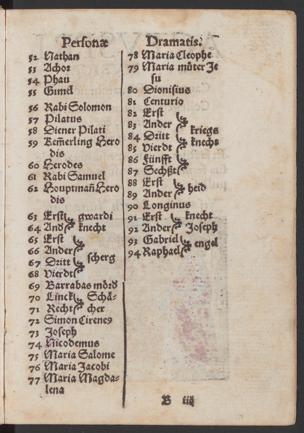 Personæ Dramatis.
52 Nathan
53 Achor
54 Phau
55 Gimel
56 Rabi Solomon
57 Pilatus
58 Diener Pilati
59 Kemerling Hero
dis
60 Herodes
61 Rabi Samuel
62 Hauptman̄ Hero
dis
63 Erst gwardi
64 And knecht
65 Erst
66 Ander
67 Dritt scherg
68 Vierdt
69 Barrabas mörd
70 Linck Schä-
71 Recht cher
72 Simon Cirenes
73 Joseph
74 Nicodemus
75 Maria Salome
76 Maria Jacobi
77 Maria Magda-
lena
78 Maria Cleophe
79 Maria můter Je
su
80 Dionisius
81 Centurio
82 Erst
83 Ander
84 Dritt kriegs
85 Vierdt knechs
86 Fünfft
87 Sechßt
88 Erst
89 Ander heid
90 Longinus
91 Erst knecht
92 Ander Joseph
93 Gabriel
94 Raphael engel
B iiij